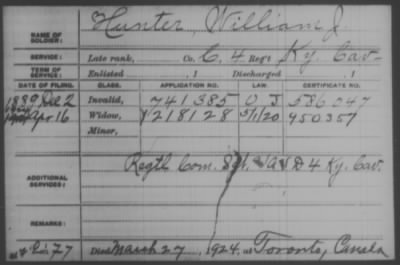 Hunter, William J.
NAME OF SOLDIER:
SERVICE: Late rank, Co. C, 4 Reg't Ky. Cav.
TERM OF SERVICE: Enlisted , 1 Discharged , 1
DATE OF FILING. CLASS. APPLICATION NO. LAW. CERTIFICATE NO.
1889 Dec 2 Invalid, 741385 586047
Apr 16 Widow, 1218128 5/1/20 950357
Minor,
ADDITIONAL SERVICES: Regtl Com. Sgt. D 4 Ky. Cav.
REMARKS:
Died March 27, 1924, at Toronto, Canada